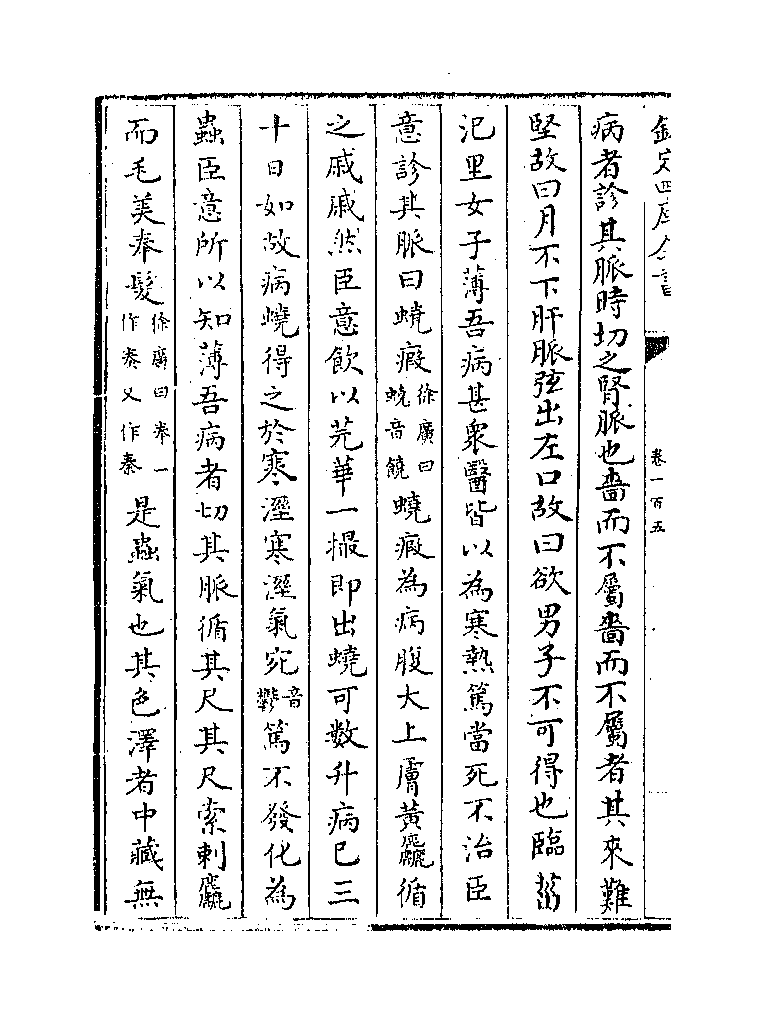 欽定四庫全書
卷一百五
病者診其脈時切之腎脈也嗇而不屬嗇而不屬者其來難
堅故曰月不下肝脈弦出左口故曰欲男子不可得也臨菑
氾里女子薄吾病甚衆醫皆以為寒熱篤當死不治臣
意診其脈曰蟯瘕徐廣曰蟯音饒蟯瘕為病腹大上膚黃麤循
之戚戚然臣意飲以芫華一撮即出蟯可數升病已三
十日如故病蟯得之於寒溼寒溼氣宛音鬱篤不發化為
蟲臣意所以知薄吾病者切其脈循其尺其尺索刺麤
而毛美奉髮徐廣曰奉一作奏又作秦是蟲氣也其色澤者中藏無